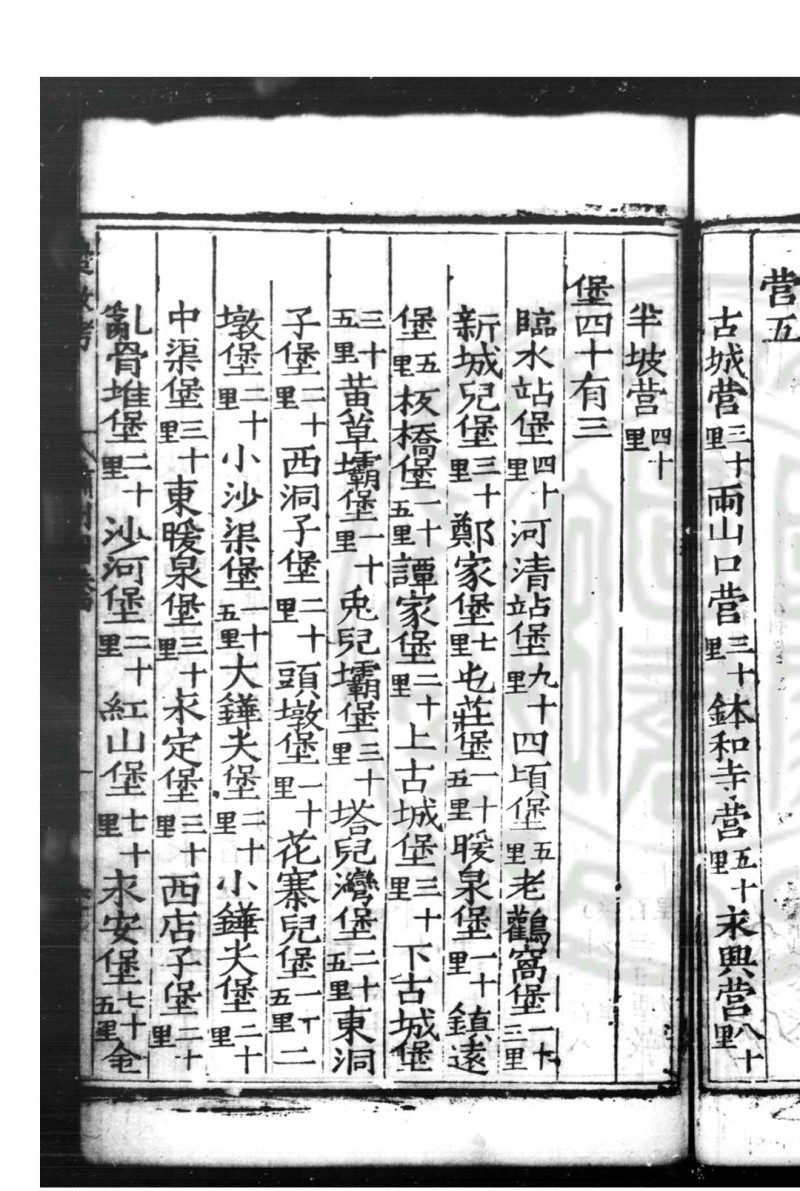 营五
古城营三十里兩山口营三十里鉢和寺营五十里永興营八十里
半坡营四十里
堡四十有三
臨水站堡四十里河清站堡九十里四頃堡五里老鸛窩堡一十三里
新城兒堡三十里鄭家堡七里屯莊堡一十五里暖泉堡一十里鎮遠
堡五里板橋堡一十五里譚家堡二十里上古城堡三十里下古城堡
三十五里黄草壩堡一十里兎兒壩堡三十里塔兒灣堡二十五里東洞
子堡二十里西洞子堡二十里頭墩堡一十里花寨兒堡一十五里二
墩堡二十里小沙渠堡一十五里大鏵夫堡二十里小鏵夫堡二十里
中渠堡三十里東暖泉堡三十里永定堡三十里西店子堡二十里
亂骨堆堡二十里沙河堡二十里紅山堡七十里永安堡七十五里金